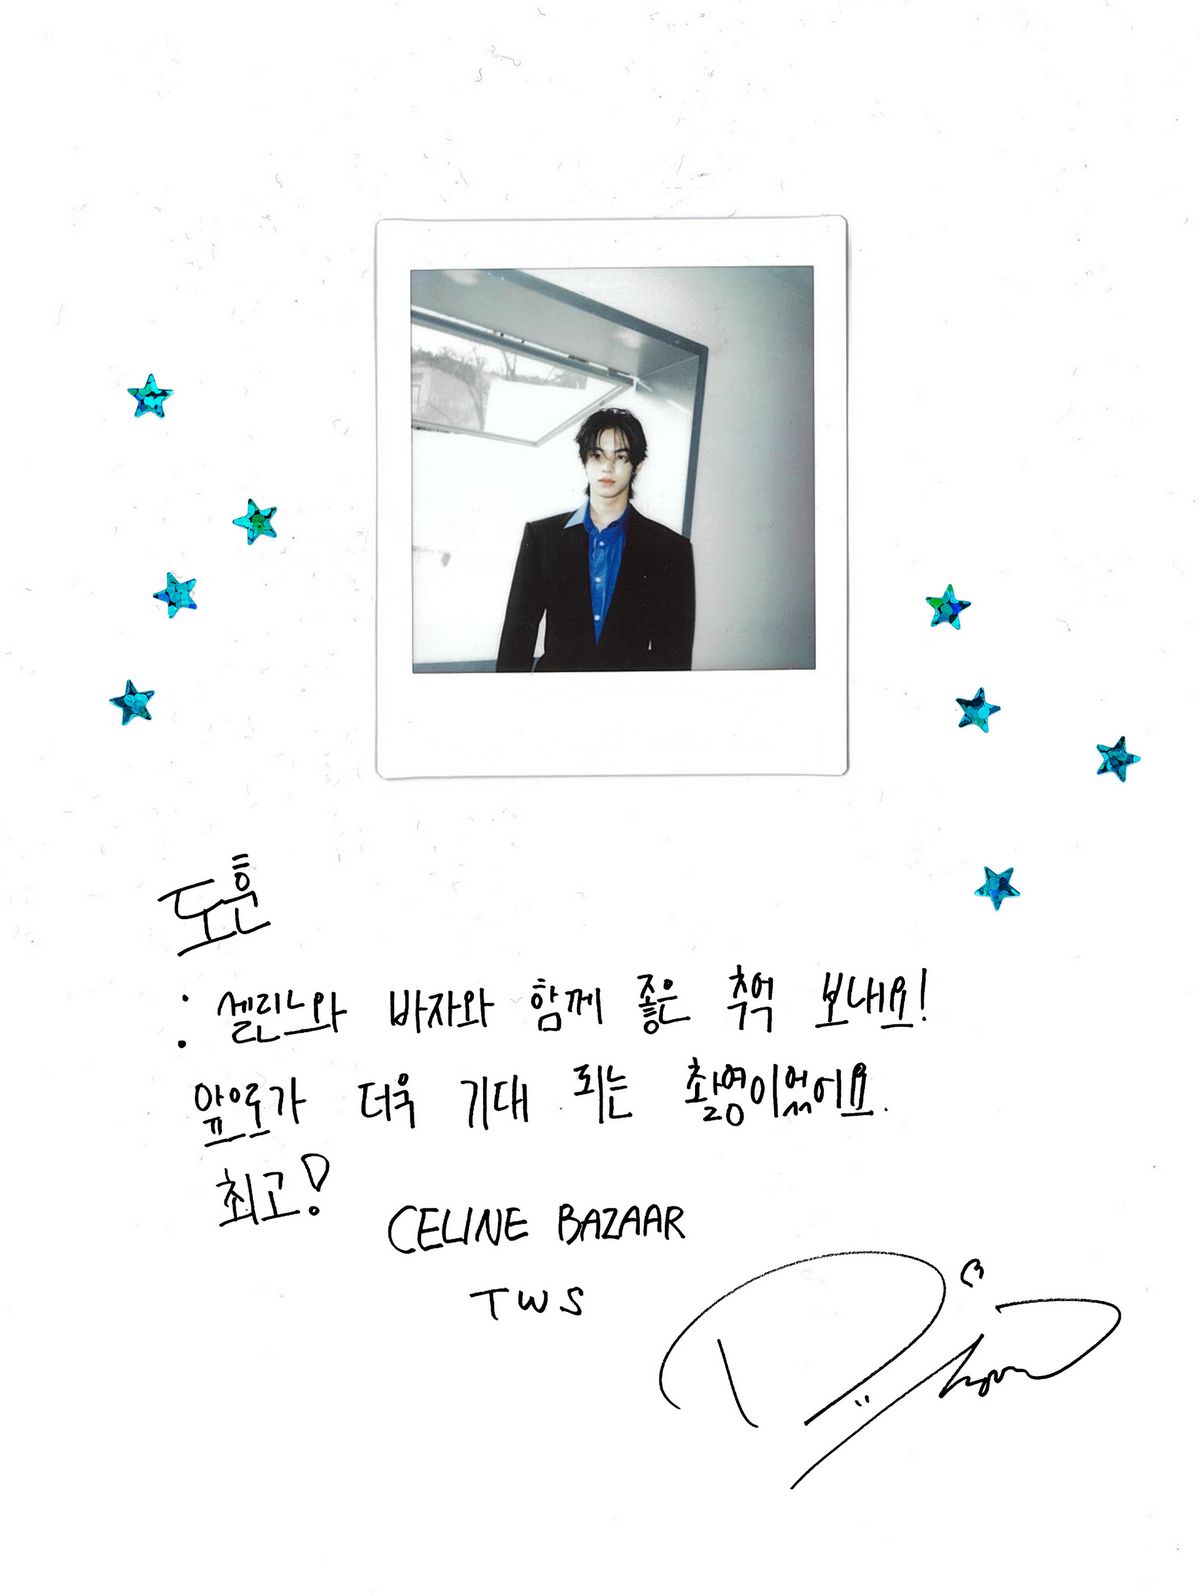 도훈
: 셀린느와 바자와 함께 좋은 추억 보내요!
앞으로가 더욱 기대 되는 촬영이었어요.
최고!
CELINE BAZAAR
TWS
Dohoon